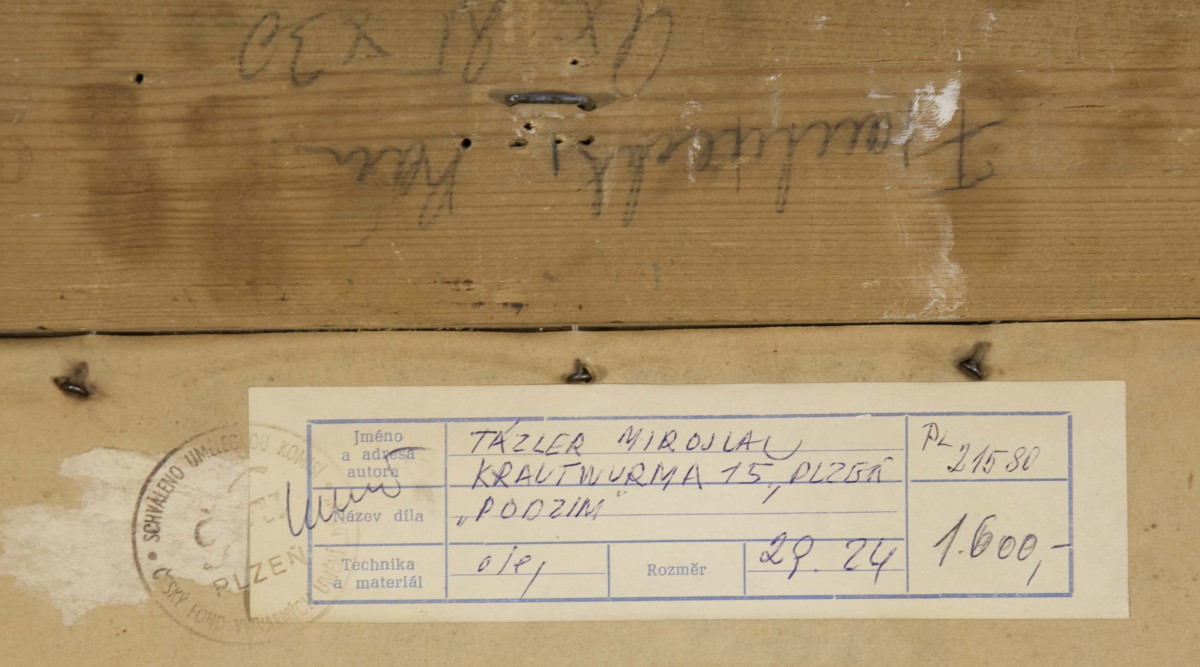 x 30
Jméno
a adresa
autora
TÁZLER MIROSLAV
KRAUTWURMA 15, PLZEŇ
PL
21580
Název díla
„PODZIM"
1.600,-
Technika
a materiál
olej
Rozměr
29. 24
SCHVÁLENO UMĚLECKOU KOMISÍ
PLZEŇ
ČESKÝ FOND VÝTVARNÝCH UMĚNÍ